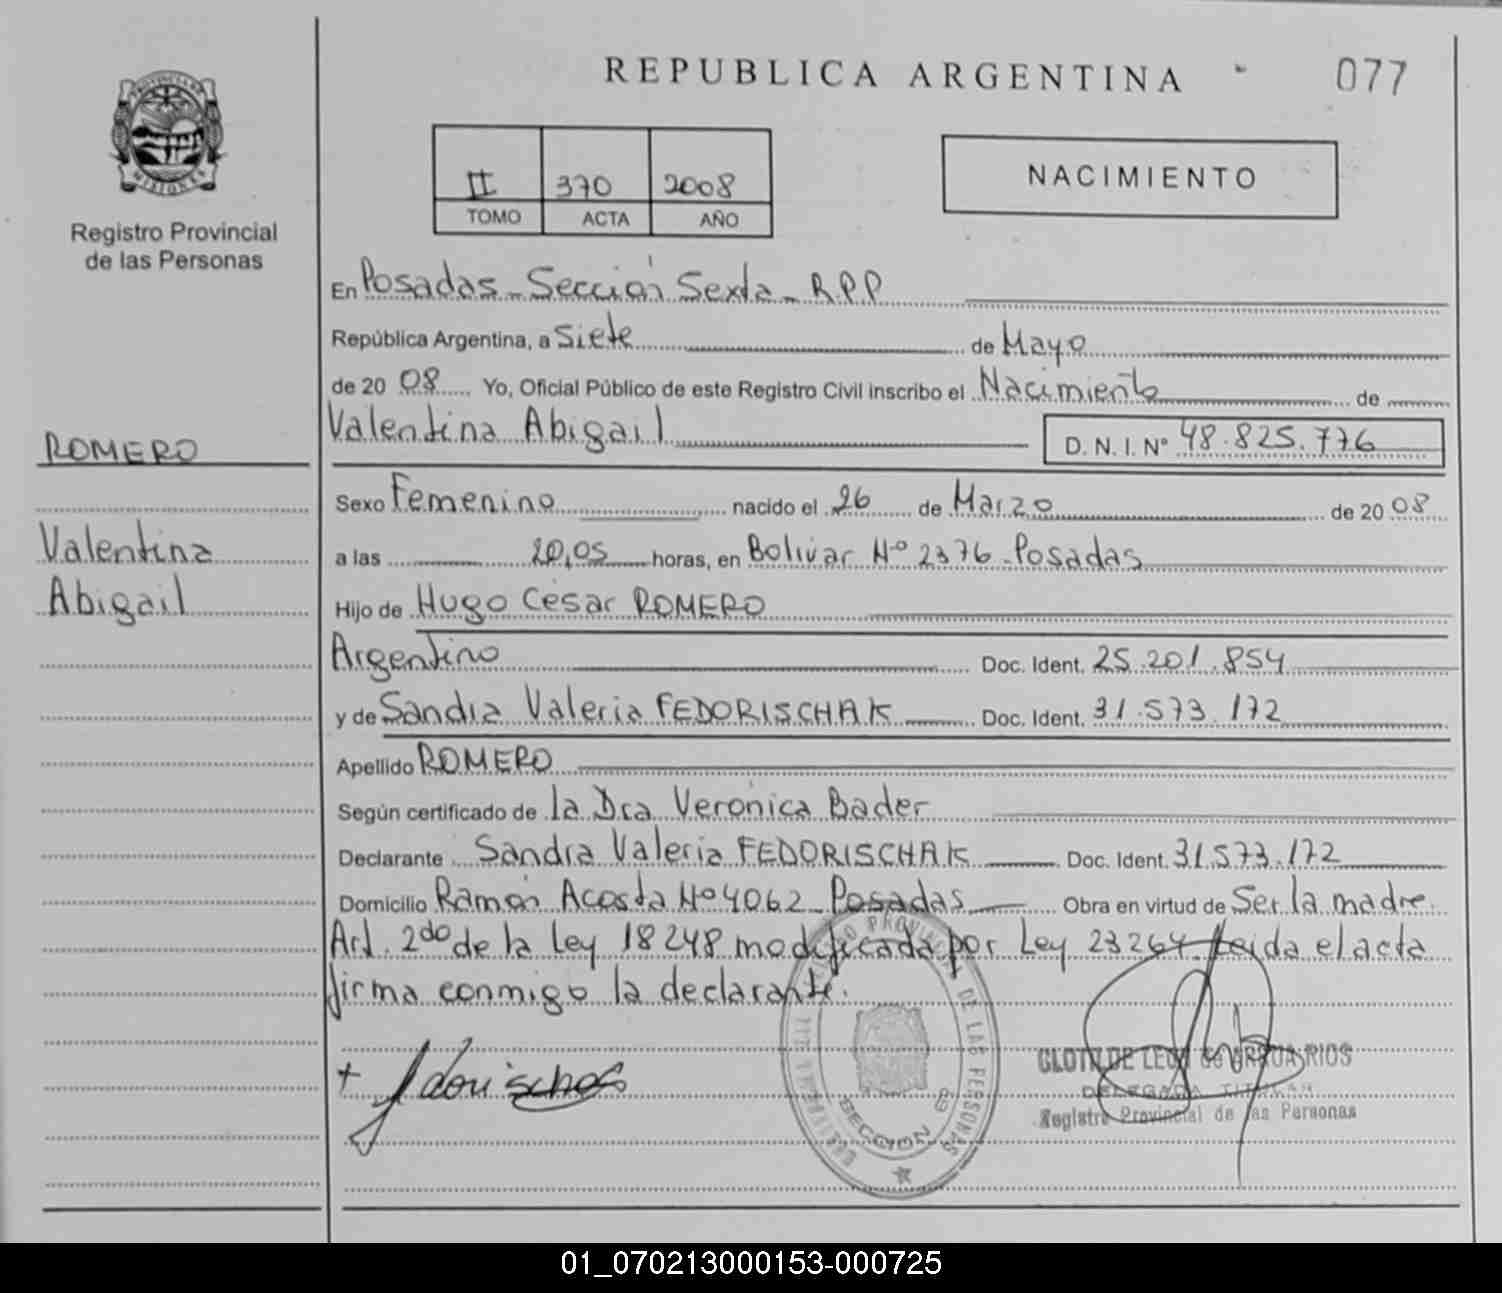 REPUBLICA ARGENTINA
077
PROVINCIA DE
MISIONES
Registro Provincial
de las Personas
II 370 2008
TOMO ACTA AÑO
NACIMIENTO
En Posadas - Sección Sexta - R.P.P
República Argentina, a Siete de Mayo
de 20 08 Yo, Oficial Público de este Registro Civil inscribo el Nacimiento de
Valentina Abigail D. N. I. Nº 48.825.776
ROMERO
Valentina
Abigail
Sexo Femenino nacido el 26 de Marzo de 20 08
a las 20,05 horas, en Bolivar Nº 2376 - Posadas
Hijo de Hugo César ROMERO
Argentino Doc. Ident. 25.201.854
y de Sandra Valeria FEDORISCHAK Doc. Ident. 31.573.172
Apellido ROMERO
Según certificado de la Dra Verónica Bader
Declarante Sandra Valeria FEDORISCHAK Doc. Ident. 31.573.172
Domicilio Ramón Acosta Nº 4062 - Posadas Obra en virtud de Ser la madre.
Art. 2do de la Ley 18248 modificada por Ley 23264. Leida el acta
firma conmigo la declarante.
REGISTRO PROVINCIAL DE LAS PERSONAS
SECCION 6º
CLOTILDE
DELEGADA TITULAR
Registro Provincial de las Personas
01_070213000153-000725